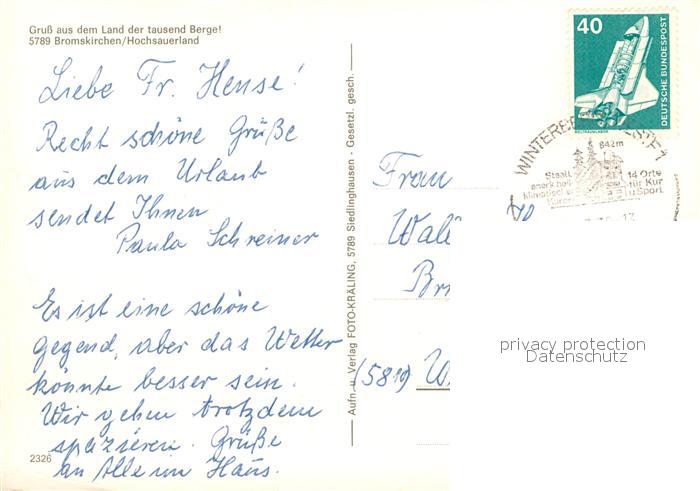 Gruß aus dem Land der tausend Berge!
5789 Bromskirchen/Hochsauerland
Liebe Fr. Hense!
Recht schöne Grüße
aus dem Urlaub
sendet Ihnen
Paula Schreiner
Es ist eine schöne
Gegend, aber das Wetter
könnte besser sein.
Wir gehen trotzdem
spazieren. Grüße
an Alle im Haus.
2326
Aufn. u. Verlag FOTO-KRÄLING, 5789 Siedlinghausen · Gesetzl. gesch.
40
DEUTSCHE BUNDESPOST
WELTRAUMLABOR
842m
Staatl.
14 Orte
für Kur
u Sport
Frau
(5810) W
privacy protection
Datenschutz